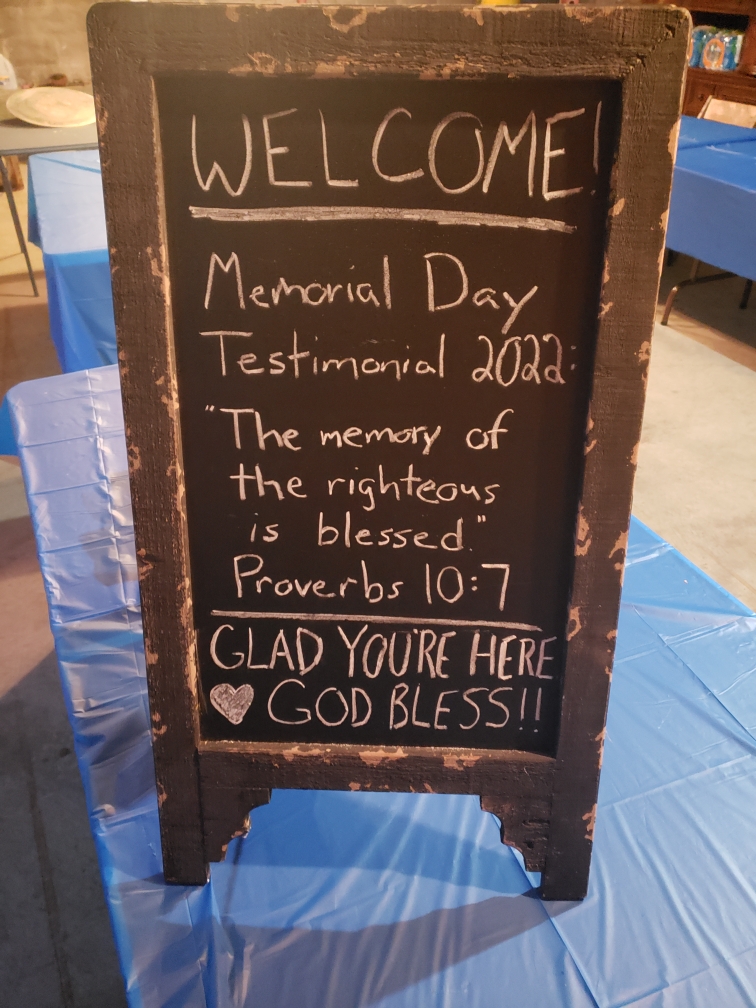 WELCOME!
Memorial Day
Testimonial 2022:
"The memory of
the righteous
is blessed."
Proverbs 10:7
GLAD YOU'RE HERE
GOD BLESS!!